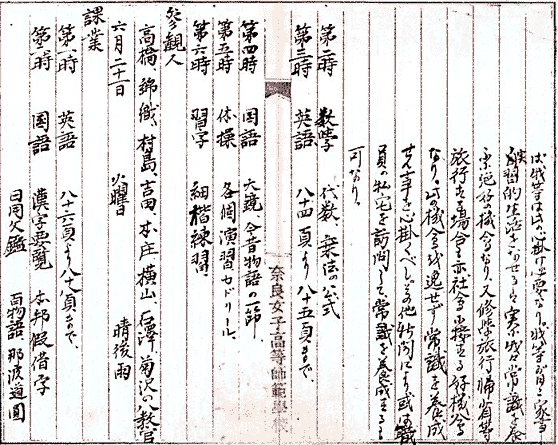 は我等は此の心掛け必要なり我等が日々家事
実習的生活をなせるは実に我々常識を養
ふ絶好の機会なり又修学旅行帰省等
旅行する場合も亦社会に接する好機会
なり、此の機会を逸せず常識を養成
せん事を心掛くべし、其の他新聞により或は職
員の私宅を訪問して常識を養成する
可なり。
第二時 数学 代数、乗法の公式
第三時 英語 八十四頁より八十五頁まで、
第四時 国語 大鏡、今昔物語の一節
第五時 体操 各個演習セドリール、
第六時 習字 細楷練習、
参観人
高橋、錦織、村島、吉田、本庄、横山、石澤、菊沢の八教官
六月二十一日 火曜日 晴後雨
課業
第一時 英語 八十六頁より八十八頁まで、
第二時 国語 漢字要覧 本邦仮借字
日用文鑑 百物語、那波道圓
奈良女子高等師範學校